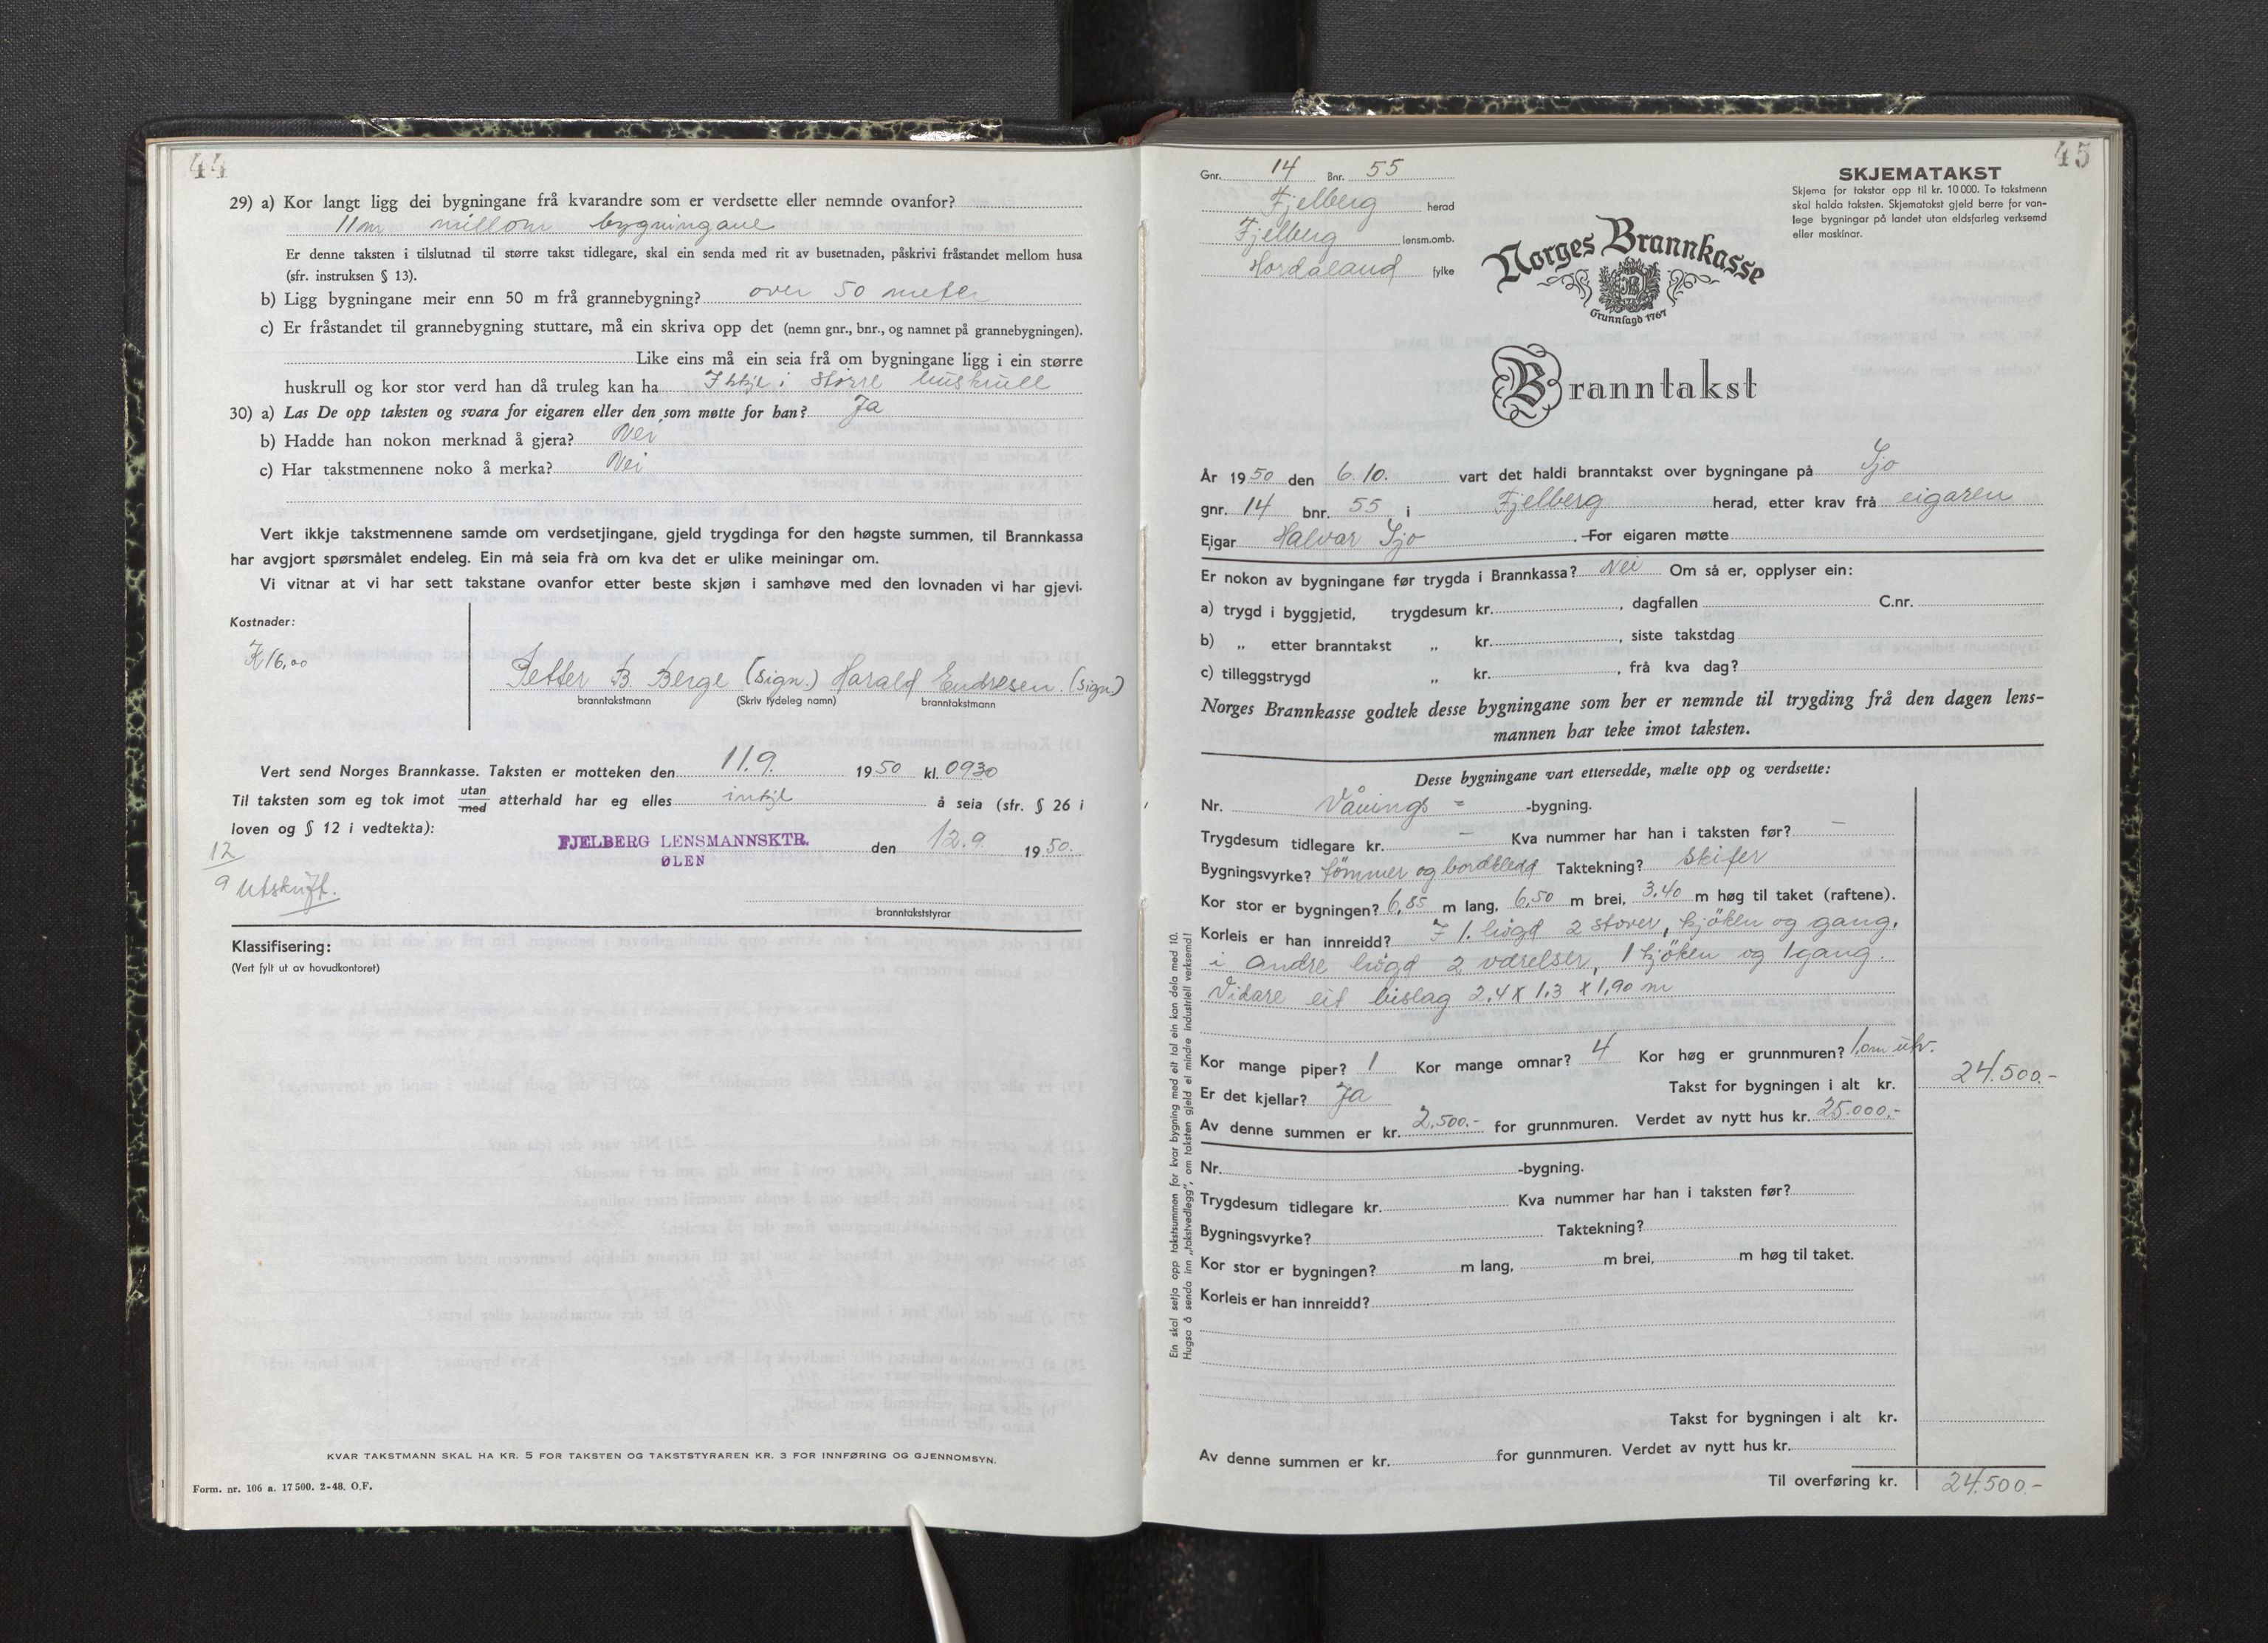 44
29) a) Kor langt ligg dei bygningane frå kvarandre som er verdsette eller nemnde ovanfor?
11m millom bygningane
Er denne taksten i tilslutnad til større takst tidlegare, skal ein senda med rit av busetnaden, påskrivi fråstandet mellom husa
(sfr. instruksen § 13).
b) Ligg bygningane meir enn 50 m frå grannebygning? over 50 meter
c) Er fråstandet til grannebygning stuttare, må ein skriva opp det (nemn gnr., bnr., og namnet på grannebygningen).
Like eins må ein seia frå om bygningane ligg i ein større
huskrull og kor stor verd han då truleg kan ha Ikkje i større huskrull
30) a) Las De opp taksten og svara for eigaren eller den som møtte for han? Ja
b) Hadde han nokon merknad å gjera? Nei
c) Har takstmennene noko å merka? Nei
Vert ikkje takstmennene samde om verdsetjingane, gjeld trygdinga for den høgste summen, til Brannkassa
har avgjort spørsmålet endeleg. Ein må seia frå om kva det er ulike meiningar om.
Vi vitnar at vi har sett takstane ovanfor etter beste skjøn i samhøve med den lovnaden vi har gjevi.
Kostnader:
K 16,00
Petter B. Berge (sign.) Harald Endresen. (sign)
branntakstmann (Skriv tydeleg namn) branntakstmann
Vert send Norges Brannkasse. Taksten er motteken den 11.9. 1950 kl. 0930
Til taksten som eg tok imot utan/med atterhald har eg elles intkje å seia (sfr. § 26 i
loven og § 12 i vedtekta):
FJELBERG LENSMANNSKTR.
ØLEN
den 12.9 1950.
12/9 Utskrift.
branntakststyrar
Klassifisering:
(Vert fylt ut av hovudkontoret)
KVAR TAKSTMANN SKAL HA KR. 5 FOR TAKSTEN OG TAKSTSTYRAREN KR. 3 FOR INNFØRING OG GJENNOMSYN.
Form. nr. 106 a. 17 500. 2-48. O.F.
45
Gnr. 14 Bnr. 55
Fjelberg herad
Fjelberg lensm.omb.
Hordaland fylke
SKJEMATAKST
Skjema for takstar opp til kr. 10 000. To takstmenn
skal halda taksten. Skjematakst gjeld berre for van-
lege bygningar på landet utan eldsfarleg verksemd
eller maskinar.
Norges Brannkasse
Grunnlagd 1767
Branntakst
År 1950 den 6.10. vart det haldi branntakst over bygningane på Sjo
gnr. 14 bnr. 55 i Fjelberg herad, etter krav frå eigaren
Eigar Halvar Sjo. For eigaren møtte
Er nokon av bygningane før trygda i Brannkassa? Nei Om så er, opplyser ein:
a) trygd i byggjetid, trygdesum kr. , dagfallen C.nr.
b) „ etter branntakst „ kr. , siste takstdag
c) tilleggstrygd „ kr. , frå kva dag?
Norges Brannkasse godtek desse bygningane som her er nemnde til trygding frå den dagen lens-
mannen har teke imot taksten.
Desse bygningane vart ettersedde, mælte opp og verdsette:
Nr. Våнings - -bygning.
Trygdesum tidlegare kr. – Kva nummer har han i taksten før? –
Bygningsvyrke? tömmer og bordkledd Taktekning? Skifer
Kor stor er bygningen? 6,85 m lang, 6,50 m brei, 3,40 m høg til taket (raftene).
Korleis er han innreidd? I 1. høgd 2 stover, kjöken og gang.
i andre høgd 2 værelser, 1 kjöken og 1 gang.
Vidare eit bislag 2,4 x 1,3 x 1,90 m
Kor mange piper? 1 Kor mange omnar? 4 Kor høg er grunnmuren? 1,0m utv.
Er det kjellar? Ja Takst for bygningen i alt kr. 24.500.-
Av denne summen er kr. 2.500.- for grunnmuren. Verdet av nytt hus kr. 25.000.-
Nr. -bygning.
Trygdesum tidlegare kr. Kva nummer har han i taksten før?
Bygningsvyrke? Taktekning?
Kor stor er bygningen? m lang, m brei, m høg til taket.
Korleis er han innreidd?
Takst for bygningen i alt kr.
Av denne summen er kr. for gunnmuren. Verdet av nytt hus kr.
Til overføring kr. 24.500.-
Ein skal setja opp takstsummen for kvar bygning med eit tal ein kan dela med 10.
Hugsa å senda inn „takstvedlegg”, om taksten gjeld ei mindre industriell verksemd!